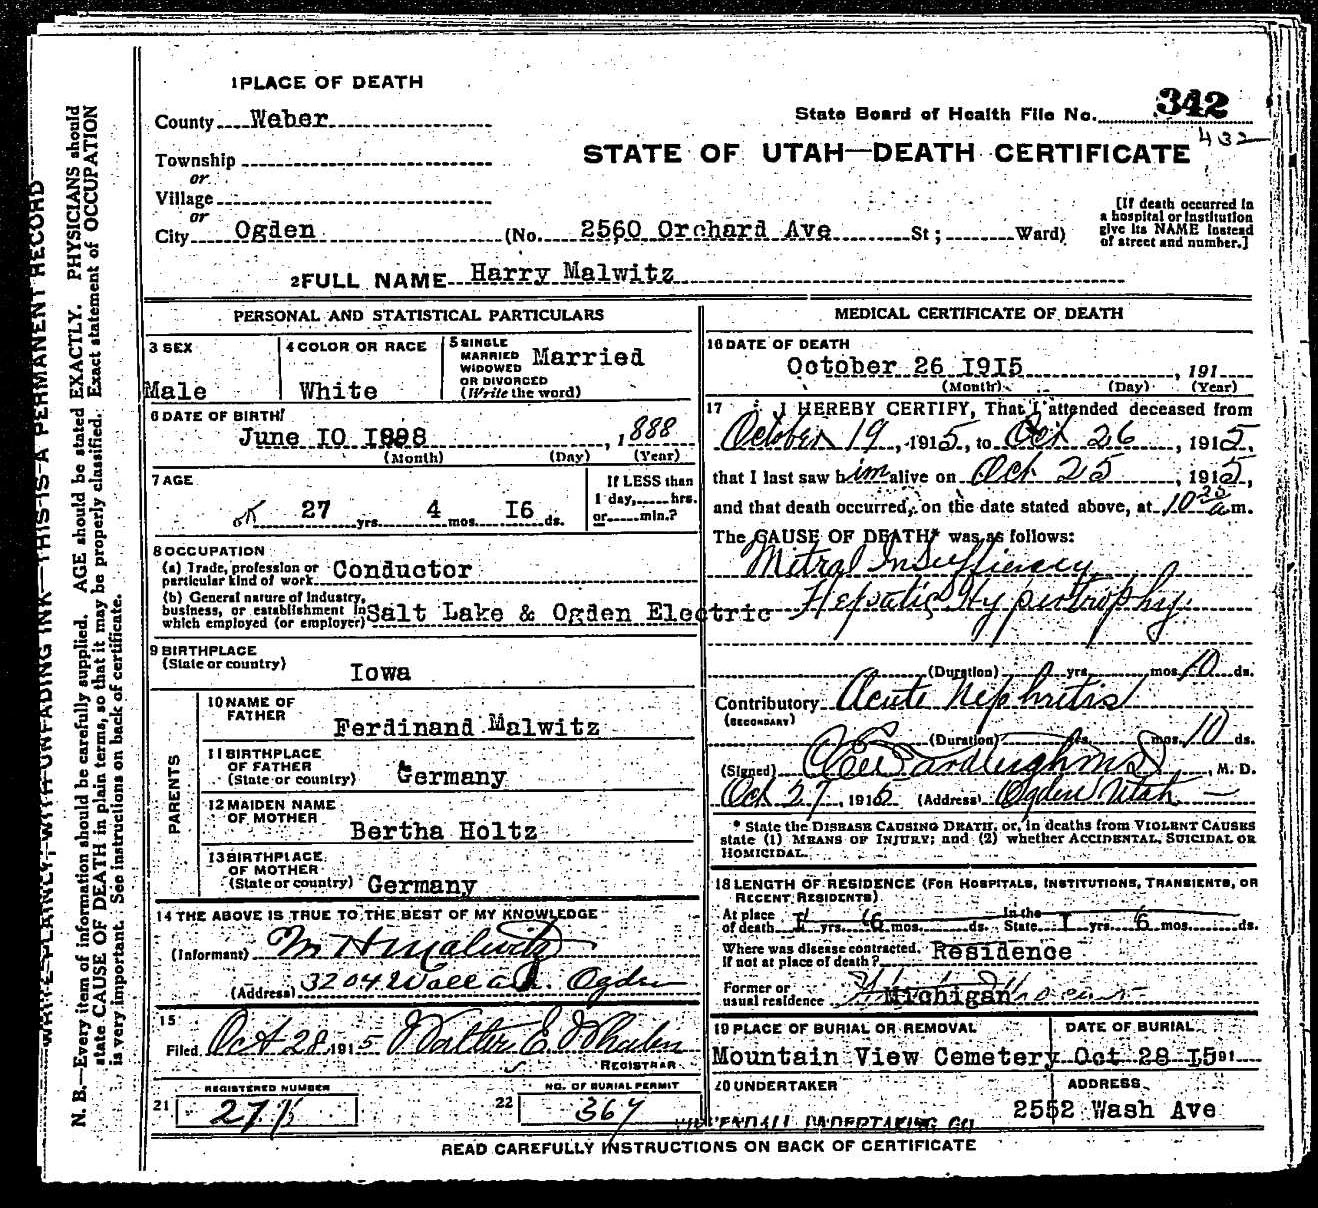 1 PLACE OF DEATH
County Weber
State Board of Health File No. 342
432
Township
or
Village
or
STATE OF UTAH—DEATH CERTIFICATE
City Ogden (No. 2560 Orchard Ave St; Ward)
[If death occurred in
a hospital or institution
give its NAME instead
of street and number.]
2 FULL NAME Harry Malwitz
PERSONAL AND STATISTICAL PARTICULARS
3 SEX
Male
4 COLOR OR RACE
White
5 SINGLE
MARRIED
WIDOWED
OR DIVORCED
(Write the word)
Married
6 DATE OF BIRTH
June IO I898, 1888
(Month) (Day) (Year)
7 AGE
27 yrs. 4 mos. I6 ds.
If LESS than
1 day, hrs.
or min.?
8 OCCUPATION
(a) Trade, profession or
particular kind of work Conductor
(b) General nature of industry,
business, or establishment in
which employed (or employer) Salt Lake & Ogden Electric
9 BIRTHPLACE
(State or country)
Iowa
PARENTS
10 NAME OF
FATHER
Ferdinand Malwitz
11 BIRTHPLACE
OF FATHER
(State or country) Germany
12 MAIDEN NAME
OF MOTHER
Bertha Holtz
13 BIRTHPLACE
OF MOTHER
(State or country) Germany
14 THE ABOVE IS TRUE TO THE BEST OF MY KNOWLEDGE
(Informant) M H Malwitz
(Address) 3204 Wall Ogden
15
Filed Oct 28 1915 Walter E Whalen
REGISTRAR
REGISTERED NUMBER
21
NO. OF BURIAL PERMIT
22 367
MEDICAL CERTIFICATE OF DEATH
16 DATE OF DEATH
October 26 I9I5, 191
(Month) (Day) (Year)
17 I HEREBY CERTIFY, That I attended deceased from
October 19, 1915, to Oct 26, 1915,
that I last saw him alive on Oct 25, 1915,
and that death occurred, on the date stated above, at 10 a m.
The CAUSE OF DEATH* was as follows:
Mitral Insufficiency
Hepatic Hypertrophy
(Duration) yrs. mos. 10 ds.
Contributory Acute Nephritis
(SECONDARY)
(Duration) yrs. mos. 10 ds.
(Signed) M. D.
Oct 27, 1915 (Address) Ogden Utah
* State the DISEASE CAUSING DEATH, or, in deaths from VIOLENT CAUSES
state (1) MEANS OF INJURY; and (2) whether ACCIDENTAL, SUICIDAL OR
HOMICIDAL.
18 LENGTH OF RESIDENCE (FOR HOSPITALS, INSTITUTIONS, TRANSIENTS, OR
RECENT RESIDENTS)
At place
of death I yrs. 6 mos. ds. In the
State I yrs. 6 mos. ds.
Where was disease contracted,
If not at place of death? Residence
Former or
usual residence Michigan
19 PLACE OF BURIAL OR REMOVAL
Mountain View Cemetery
DATE OF BURIAL
Oct 28 I5 191
20 UNDERTAKER
UNDERTAKING CO
ADDRESS
2552 Wash Ave
READ CAREFULLY INSTRUCTIONS ON BACK OF CERTIFICATE
WRITE PLAINLY, WITH UNFADING INK—THIS IS A PERMANENT RECORD
N. B.—Every item of information should be carefully supplied. AGE should be stated EXACTLY. PHYSICIANS should
state CAUSE OF DEATH in plain terms, so that it may be properly classified. Exact statement of OCCUPATION
is very important. See instructions on back of certificate.